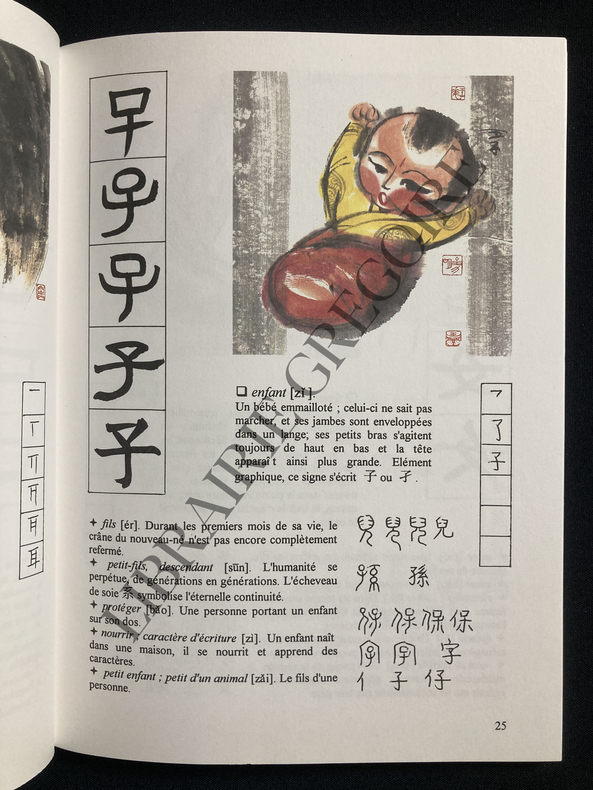 子
子
子
子
子
❑ enfant [zǐ].
Un bébé emmailloté ; celui-ci ne sait pas
marcher, et ses jambes sont enveloppées
dans un lange; ses petits bras s'agitent
toujours de haut en bas et la tête
apparaît ainsi plus grande. Elément
graphique, ce signe s'écrit 子 ou 孑.
✦ fils [ér]. Durant les premiers mois de sa vie, le
crâne du nouveau-né n'est pas encore complètement
refermé.
✦ petit-fils, descendant [sūn]. L'humanité se
perpétue, de générations en générations. L'écheveau
de soie 糸 symbolise l'éternelle continuité.
✦ protéger [bǎo]. Une personne portant un enfant
sur son dos.
✦ nourrir ; caractère d'écriture [zì]. Un enfant naît
dans une maison, il se nourrit et apprend des
caractères.
✦ petit enfant ; petit d'un animal [zǎi]. Le fils d'une
personne.
兒 兒 兒 兒
孫 孫
保 保 保 保
字 字 字
亻 子 仔
乛
了
子
一
丅
耳
25
LIBRAIRIE GREGOIRE